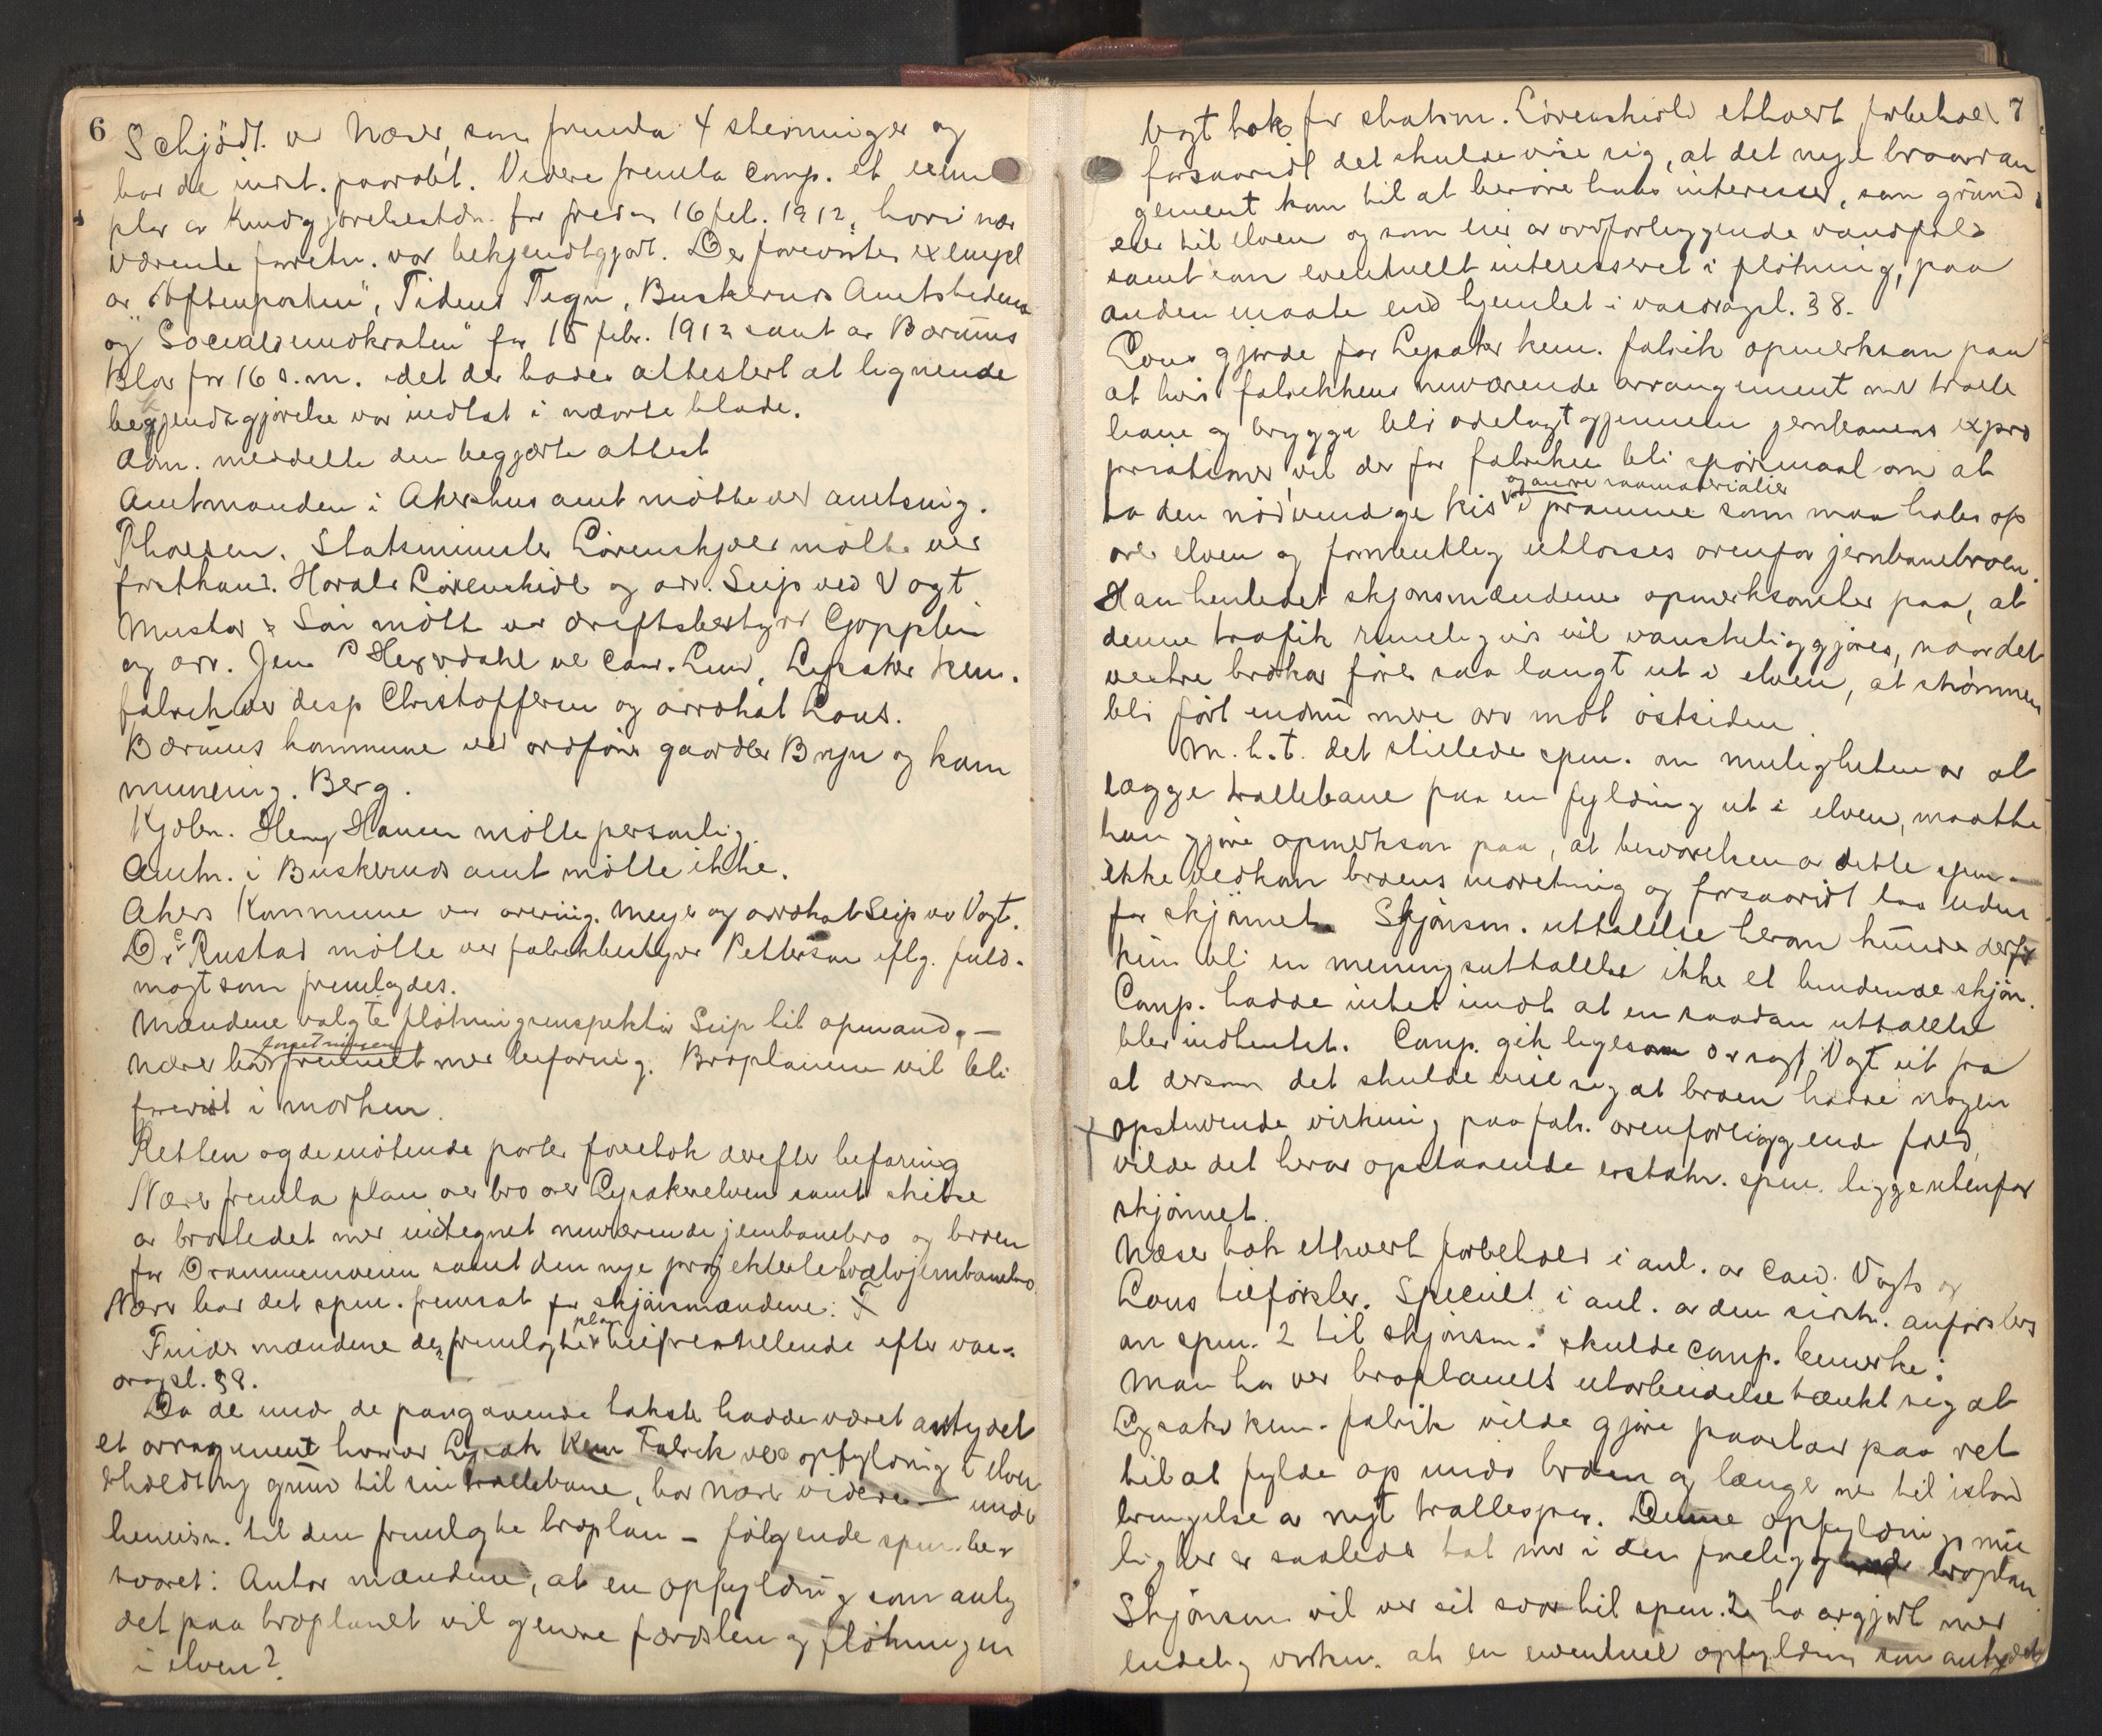 6
Schjödt v Næser, som fremla 4 stevninger og
bad de indst. paaropt. Videre fremla comp. et exem
plar av Kundgjörelsestid. for fredag 16 feb. 1912, hvori nær
værende forretn. var bekjendtgjort. Der forevistes exempl
av "Aftenposten", Tidens Tegn, Buskeruds Amtstidende
og "Socialdemokraten" for 15 febr. 1912 samt av Bærums
Blad for 16 s.m. idet der bades attestert at lignende
begjendtgjörelse var indtat i nævnte blade.
Adm. meddelte den begjærte attest
Amtmanden i Akershus amt mötte ved amtsing.
Statsminister Lövenskjold mötte ved
forsthand. Harald Lövenskiold og adv. Seip ved Vogt
Mustad & Sön mött ved driftsbestyrer Gopplen
og adv. Jens P Heyerdahl ved cand. Lund, Lysaker kem.
fabrik ved disp Christoffersen og advokat Lous.
Bærums kommune ved ordförer gaardbr Bryn og kom
muneing. Berg.
Kjöbm. Henry Hansen mötte personlig.
Amtm. i Buskeruds amt mötte ikke.
Akers Kommune ved overing. Meyer og advokat Seip ved Vogt.
Dr Rustad mötte ved fabrikbestyrer Pettersen iflg. fuld-
magt som fremlagdes.
Mændene valgte flötningsinspektör Seip til opmand. —
Næser bad forretningen fremmet med befaring. Broplanen vil bli
forevist i marken.
Retten og de mötende parter foretok derefter befaring
Næser fremla plan over bro over Lysakerelven samt skitse
av brostedet med indtegnet nuværende jernbanebro og broen
for Drammensveien samt den nye projekterte jernbanebro
Næser bad det spm. fremsat for skjönsmændene: X
Finder mændene den fremlagte plan tilfredsstillende efter vas-
dragsl. 38.
Da de under de paagaaende takster hadde været antydet
et arragement hvorved Lysak Kem Fabrik ved opfyldning i elven
erholdt ny grund til sin trallebane, bad Næser videre — under
henvisn. til den fremlagte broplan — fölgende spm. be-
svaret: Antar mændene, at en opfyldning som anty
det paa broplanet vil genere færdslen og flötningen
i elven?
7
Vogt tok for statsm. Lövenskiold ethvert forbehold
forsaavidt det skulde vise sig, at det nye broarran
gement kom til at beröre hans interesser, som grund
eier til elven og som eier av ovenforliggende vandfald
samt som eventuelt interesseret i flötning, paa
anden maate end hjemlet i vasdragsl. 38.
Lous gjorde for Lysaker kem. fabrik opmerksom paa
at hvis fabrikkens nuværende arrangement med tralle
bane og brygge blir ödelagt gjennem jernbanens expro
priationer, vil der for fabriken bli spörsmaal om at
ta den nödvendige kis og andre raamaterialier i pramme som maa hales op
over elven og formentlig utlosses ovenfor jernbanebroen.
Han henledet skjönsmændenes opmerksomhet paa, at
denne trafik rimeligvis vil vanskeliggjöres, naar det
vestre brokar föres saa langt ut i elven, at strömmen
blir fört endnu mere over mot östsiden.
M.h.t. det stillede spm. om muligheten av at
lægge trallebane paa en fyldning ut i elven, maatte
han gjöre opmerksom paa, at besvarelsen av dette spm.
ikke vedkom broens indretning og forsaavidt laa uden
for skjönnet. Skjönsm. uttalelse herom kunde derfor
kun bli en meningsuttallelse ikke et bindende skjön.
Comp. hadde intet imot at en saadan uttalelse
blev indhentet. Comp. gik ligesom o.r.sagf. Vogt ut fra
at dersom det skulde vise sig at broen hadde nogen
opstuvende virkning paa fabr. ovenforliggende fald,
vilde det herav opstaaende erstatn. spm. ligge utenfor
skjönnet.
Næser tok ethvert forbehold i anl. av cand. Vogts og
Lous tilförsler. Specielt i anl. av den sidstn. anförsler
om spm. 2 til skjönsm. skulde comp. bemerke:
Man har ved broplanets utarbeidelse tænkt sig at
Lysaker kem. fabrik vilde gjöre paastand paa ret
til at fylde op under broen og længer ned til istand
bringelse av nyt trallespor. Denne opfyldnings mu
lighet er saaledes tat med i den foreliggende broplan.
Skjönsm vil ved sit svar til spm. 2 ha avgjort med
endelig virkn. at en eventuel opfyldning som antydet